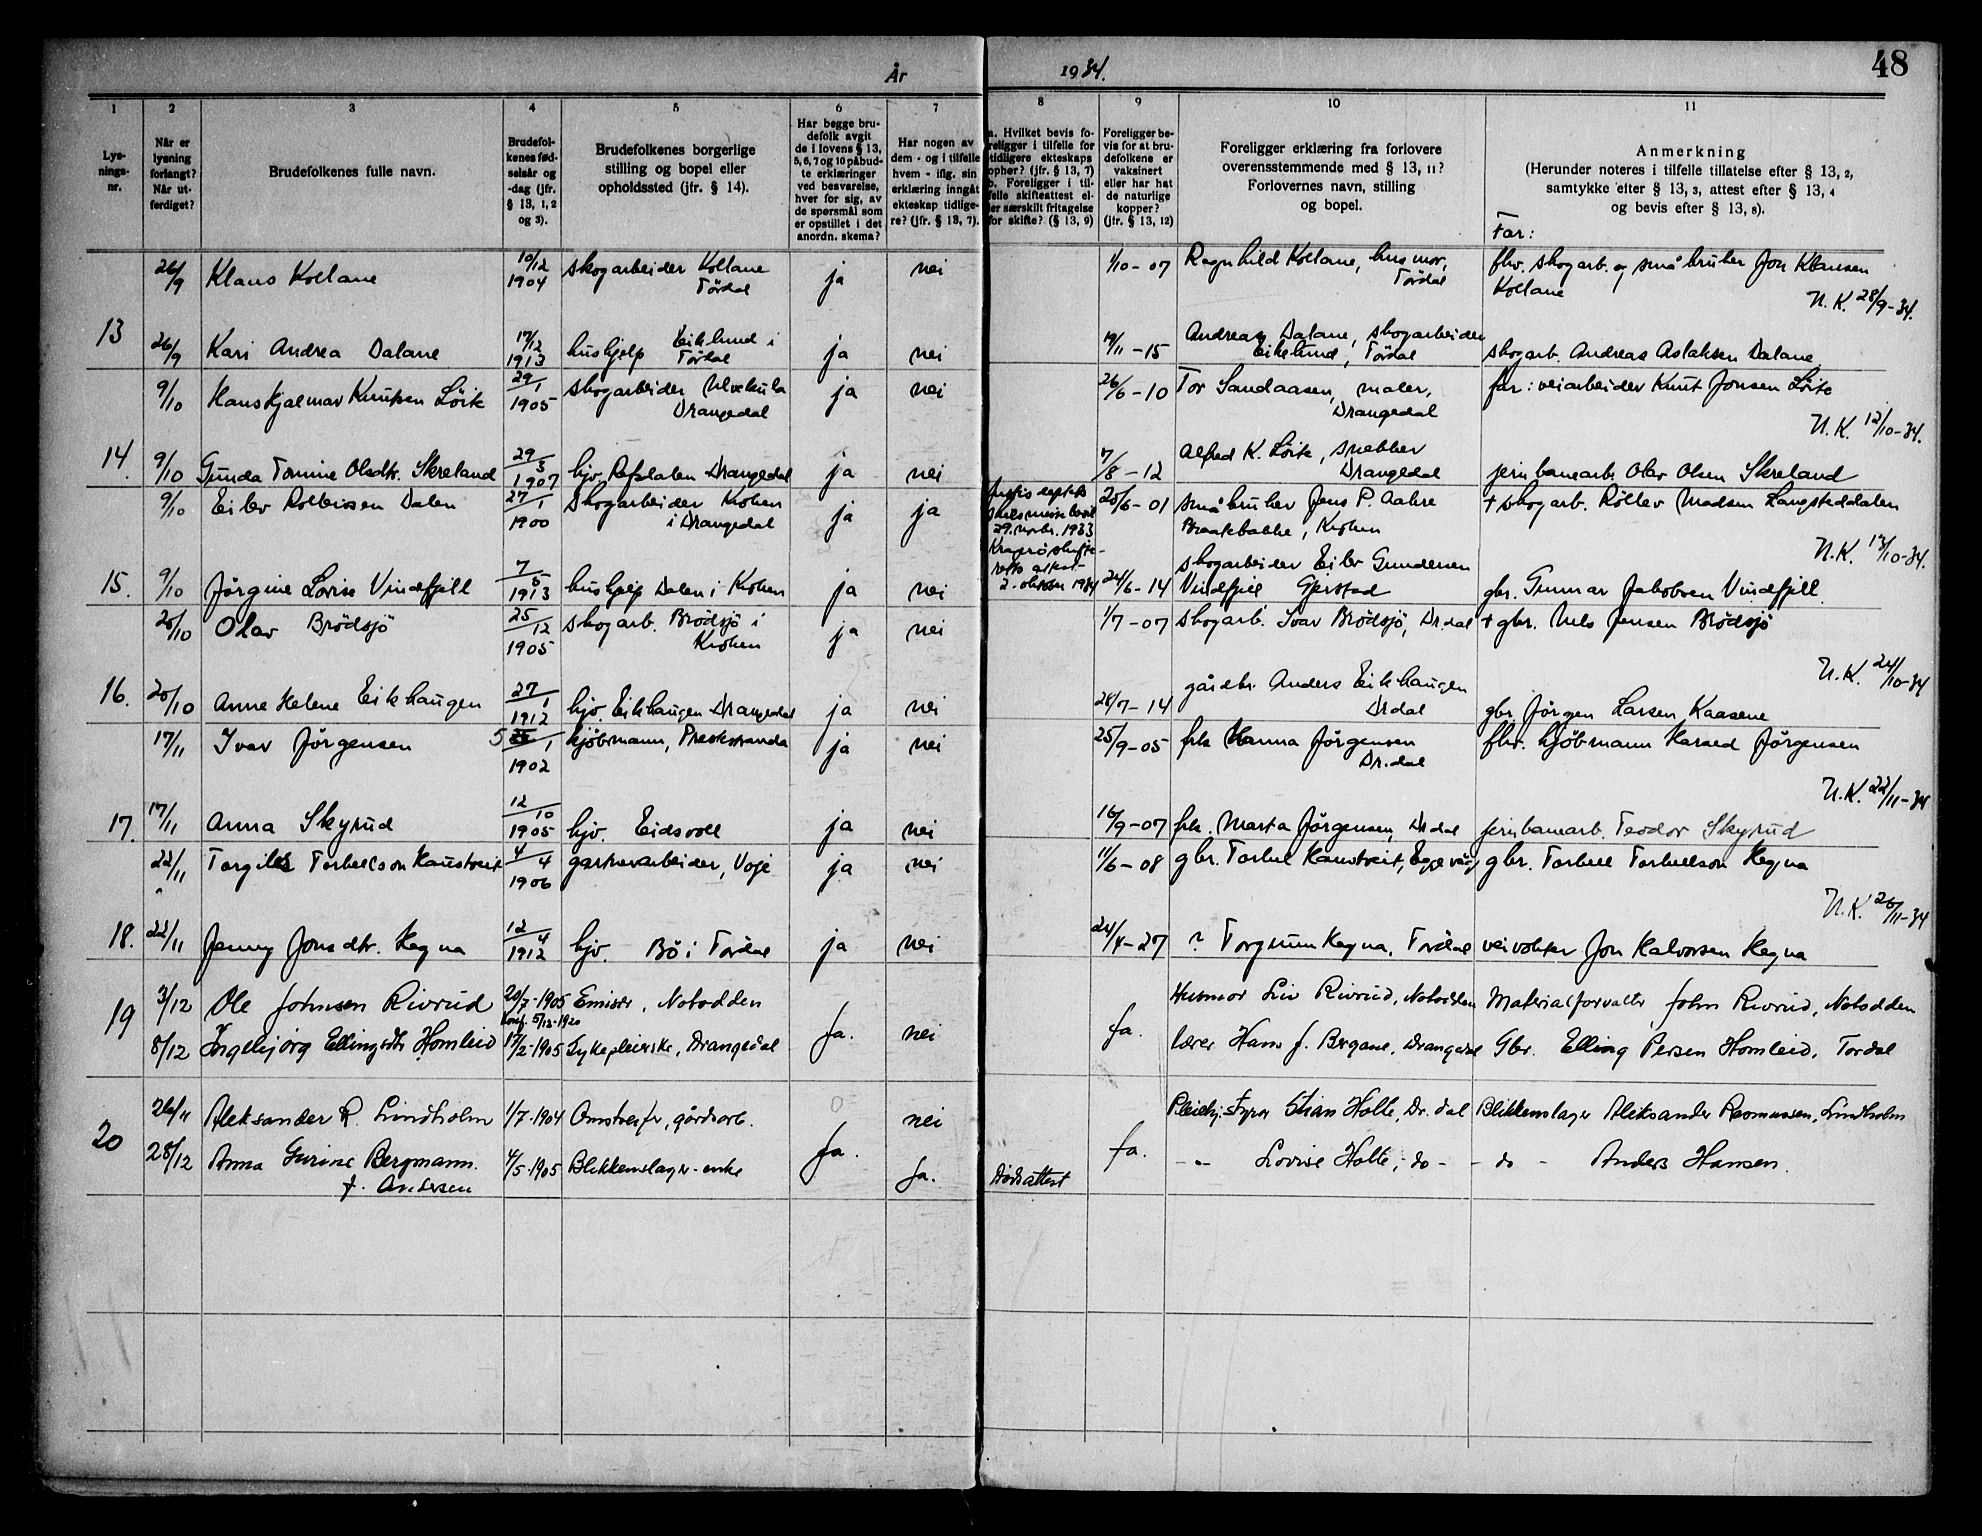 48
År 1934.
1 2 3 4 5 6 7 8 9 10 11
Lys-
nings-
nr.
Når er
lysning
forlangt?
Når ut-
ferdiget?
Brudefolkenes fulle navn.
Brudefol-
kenes fød-
selsår og
-dag (jfr.
§ 13, 1, 2
og 3).
Brudefolkenes borgerlige
stilling og bopel eller
opholdssted (jfr. § 14).
Har begge bru-
defolk avgit
de i lovens § 13,
5, 6, 7 og 10 påbud-
te erklæringer
ved besvarelse,
hver for sig, av
de spørsmål som
er opstillet i det
anordn. skema?
Har nogen av
dem - og i tilfelle
hvem - iflg. sin
erklæring inngått
ekteskap tidlige-
re? (jfr. § 13, 7).
a. Hvilket bevis fo-
religger i tilfelle for
tidligere ekteskaps
ophør? (jfr. § 13, 7)
b. Foreligger i til-
felle skifteattest el-
ler særskilt fritagelse
for skifte? (§ 13, 9)
Foreligger be-
vis for at bru-
defolkene er
vaksinert
eller har hat
de naturlige
kopper?
(jfr. § 13, 12)
Foreligger erklæring fra forlovere
overensstemmende med § 13, 11?
Forlovernes navn, stilling
og bopel.
Anmerkning
(Herunder noteres i tilfelle tillatelse efter § 13, 2,
samtykke efter § 13, 3, attest efter § 13, 4
og bevis efter § 13, 8).
Far:
26/9 Klaus Kollane 10/12 1904 skogarbeider Kollane Tördal ja nei 1/10-07 Ragnhild Kollane, husmor, Tördal fhv. skogarb. og småbruker Jon Klausen Kollane
N.K. 28/9-34.
13 26/9 Kari Andrea Dalane 17/12 1913 hushjelp Eiklund i Tördal ja nei 19/11-15 Andreas Dalane, skogarbeider Eiklund, Tördal skogarb. Andreas Aslaksen Dalane
9/10 Hans Hjalmar Knutsen Löite 29/1 1905 skogarbeider Drangedal ja nei 26/6-10 Tor Sandaasen, maler, Drangedal far: veiarbeider Knut Jonsen Löite
N.K. 12/10-34.
14. 9/10 Gunda Tomine Olsdtr. Skreland 29/3 1907 hjv. Refsdalen Drangedal ja nei 7/8-12 Alfred K. Löite, snekker Drangedal jernbanearb. Olav Olsen Skreland
9/10 Eilev Rolleivsen Dalen 27/1 1900 Skogarbeider Kroken i Drangedal ja ja
29. novbr. 1933
Kragerö skifte-
retts attest
2. oktober 1934
20/6-01 småbruker Jens P. Aakre Braatebakke, Kroken + skogarb. Rollev Madsen Langsteddalen
N.K. 13/10-34.
15. 9/10 Jörgine Lovise Vindfjell 7/5 1913 hushjelp Dalen i Kroken ja nei 24/6-14 skogarbeider Eilev Gundersen Vindfjell Gjerstad gbr. Gunnar Jakobsen Vindfjell.
20/10 Olav Brödsjö 25/12 1905 skogarb. Brödsjö i Kroken ja nei 1/7-07 skogarb. Ivar Brödsjö, Drdal + gbr. Nils Jensen Brödsjö
N.K. 24/10-34
16. 20/10 Anne Helene Eikhaugen 27/1 1912 hjv. Eikhaugen Drangedal ja nei 28/7-14 gårdbr. Anders Eikhaugen Drdal gbr. Jörgen Larsen Kaasene
17/11 Ivar Jörgensen 5/1 1902 kjöbmann, Prestestranda ja nei 25/9-05 frk Hanna Jörgensen Dr.dal fhv. kjöbmann Harald Jörgensen
N.K. 22/11-34
17. 17/11 Anna Skyrud 12/10 1905 hjv. Eidsvoll ja nei 16/9-07 frk. Marta Jörgensen, Drdal jernbanearb. Teodor Skyrud
22/11 Torgils Torkellson Haustveit 4/4 1906 gartnerarbeider, Voje ja nei 11/6-08 gbr. Torkel Haustveit, gbr. Torkell Torkellson Hegna
N.K. 26/11-34
18. 22/11 Jenny Jonsdtr. Hegna 12/4 1912 hjv. Bö i Tördal ja nei 24/4-27 ? Torgrim Hegna, Tördal veivokter Jon Halvorsen Hegna
19 3/12 Ole Johnsen Rivrud 20/7-1905 Emisær, Notodden Husmor Liv Rivrud, Notodden Materialforvalter John Rivrud, Notodden
Konf. 5/12-1920
ja. nei ja.
8/12 Ingebjørg Ellingsdtr Homleid 17/2-1905 Sykepleierske, Drangedal Lærer Hans J. Bergane, Drangedal Gbr. Elling Persen Homleid, Tørdal
20 26/11 Aleksander R. Lindholm 1/7-1904 gårdsarb. nei Pleiehj. styrer Stian Holte, Dr.dal Blikkenslager Aleksander Rasmussen, Lindholm
ja. ja.
28/12 Anna Gurine Bergmann. f. Andersen 4/5-1905 Blikkenslager-enke ja. Dødsattest -"- Lovise Holte, -do- -do- Anders Hansen.